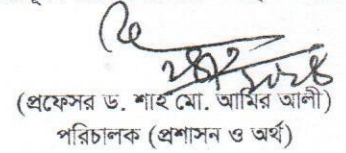 (প্রফেসর ড. শাহ মো. আমির আলী)
পরিচালক (প্রশাসন ও অর্থ)